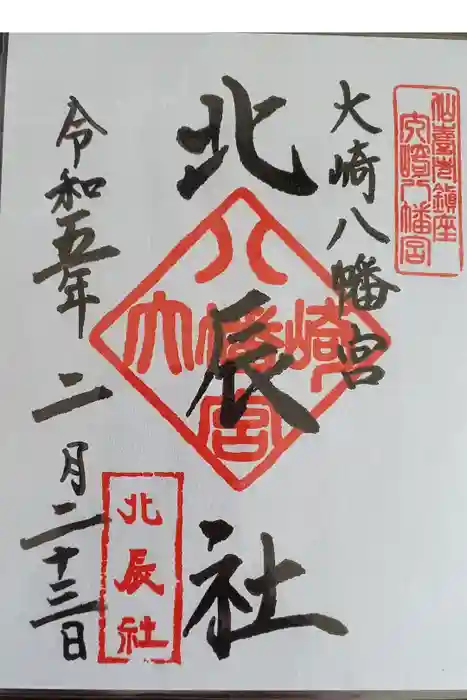 仙臺市鎮座
大崎八幡宮
大崎八幡宮
北辰社
八
大幡崎
宮
北辰社
令和五年二月二十三日